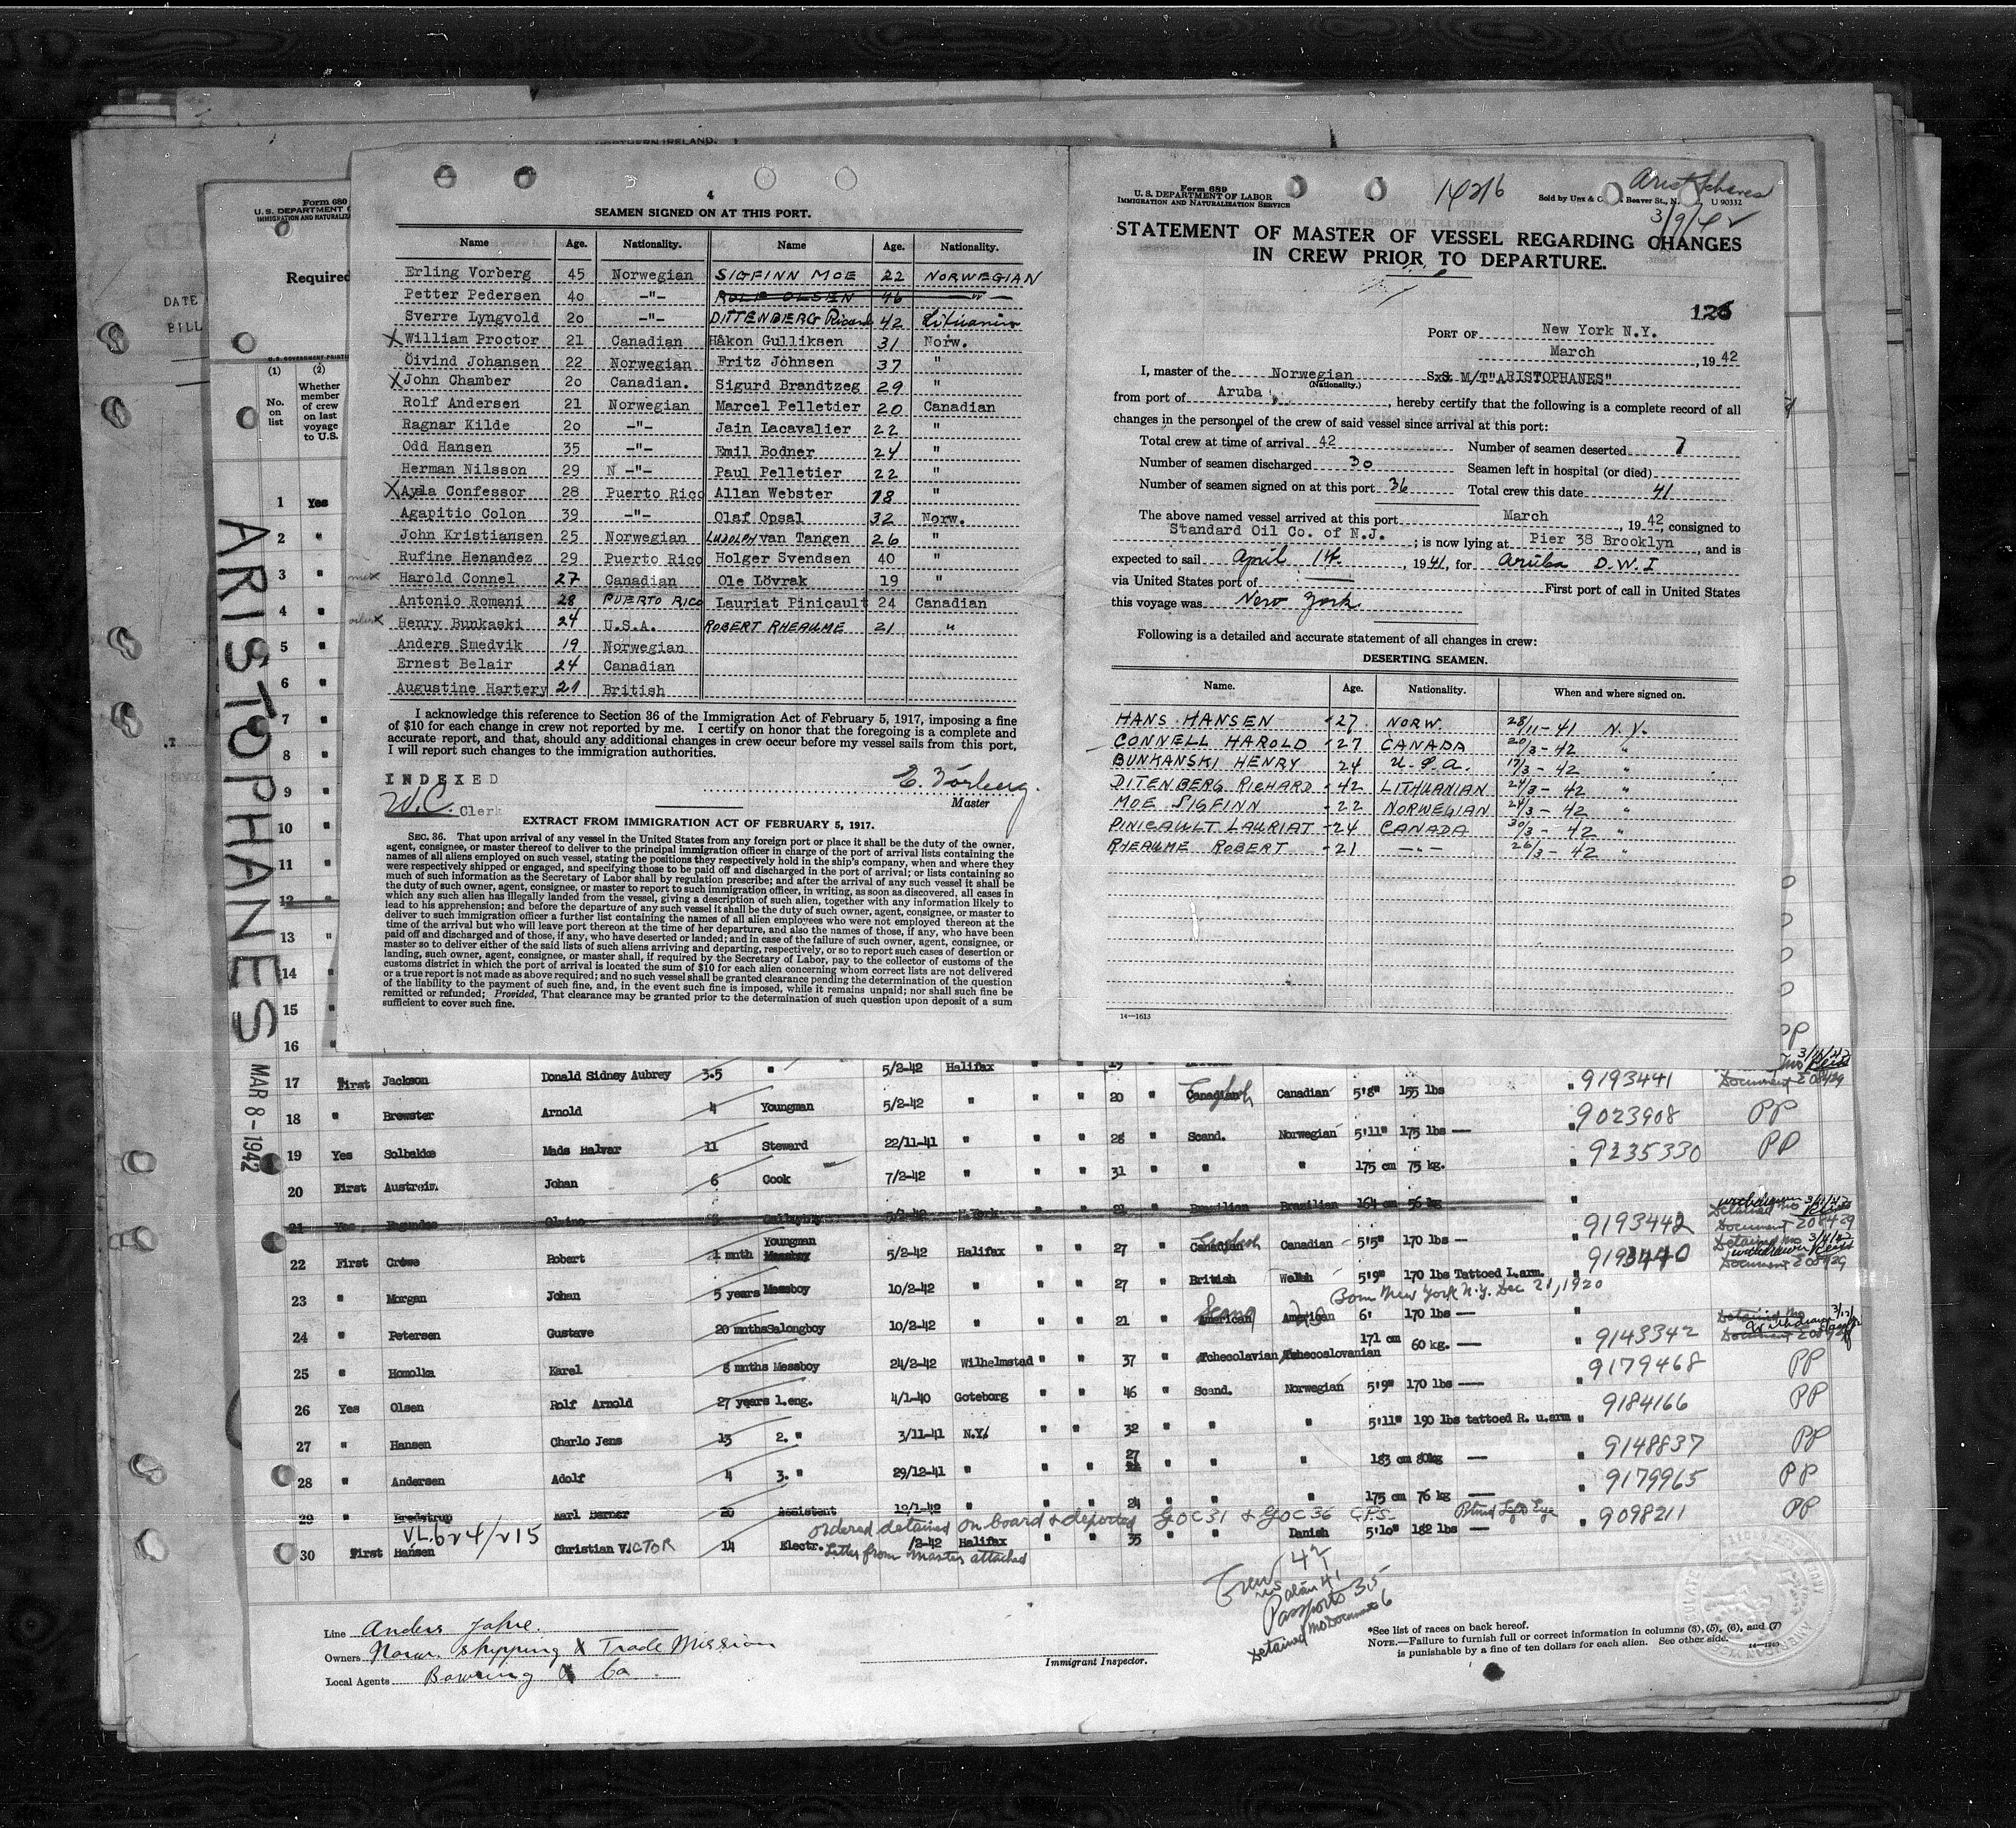 NORTHERN IRELAND.
Form 680
U. S. DEPARTMENT O
IMMIGRATION AND NATURALIZA
Required
DATE
BILL
U. S. GOVERNMENT PRINTI
(1) (2)
No. on list
Whether member of crew on last voyage to U.S.
1 Yes
2 "
3 "
4 "
5 "
6 "
7 "
8 "
9 "
10 "
11 "
12 "
13 "
14 "
15 "
16 "
ARISTOPHANES
MAR 8-1942
4
SEAMEN SIGNED ON AT THIS PORT.
Name Age. Nationality. Name Age. Nationality.
Erling Vorberg 45 Norwegian SIGFINN MOE 22 NORWEGIAN
Petter Pedersen 40 -"- ROLF OLSEN 46 -"-
Sverre Lyngvold 20 -"- DITTENBERG Ricard 42 Lituanian
X William Proctor 21 Canadian Håkon Gulliksen 31 Norw.
Öivind Johansen 22 Norwegian Fritz Jöhnsen 37 "
X John Chamber 20 Canadian. Sigurd Brandtzeg 29 "
Rolf Andersen 21 Norwegian Marcel Pelletier 20 Canadian
Ragnar Kilde 20 -"- Jain Lacavalier 22 "
Odd Hansen 35 -"- Emil Bodner 24 "
Herman Nilsson 29 N -"- Paul Pelletier 22 "
X Ayala Confessor 28 Puerto Rico Allan Webster 18 "
Agapitio Colon 39 -"- Olaf Opsal 32 Norw.
John Kristiansen 25 Norwegian LUDOLPH van Tangen 26 "
Rufine Henandez 29 Puerto Rico Holger Svendsen 40 "
Harold Connel 27 Canadian Ole Lövrak 19 "
Antonio Romani 28 PUERTO RICO Lauriat Pinicault 24 Canadian
Henry Bunkaski 24 U.S.A. ROBERT RHEAUME 21 "
Anders Smedvik 19 Norwegian
Ernest Belair 24 Canadian
Augustine Hartery 21 British
I acknowledge this reference to Section 36 of the Immigration Act of February 5, 1917, imposing a fine
of $10 for each change in crew not reported by me. I certify on honor that the foregoing is a complete and
accurate report, and that, should any additional changes in crew occur before my vessel sails from this port,
I will report such changes to the immigration authorities.
INDEXED
W.C. Clerk
E. Vörberg.
Master
EXTRACT FROM IMMIGRATION ACT OF FEBRUARY 5, 1917.
SEC. 36. That upon arrival of any vessel in the United States from any foreign port or place it shall be the duty of the owner,
agent, consignee, or master thereof to deliver to the principal immigration officer in charge of the port of arrival lists containing the
names of all aliens employed on such vessel, stating the positions they respectively hold in the ship's company, when and where they
were respectively shipped or engaged, and specifying those to be paid off and discharged in the port of arrival; or lists containing so
much of such information as the Secretary of Labor shall by regulation prescribe; and after the arrival of any such vessel it shall be
the duty of such owner, agent, consignee, or master to report to such immigration officer, in writing, as soon as discovered, all cases in
which any such alien has illegally landed from the vessel, giving a description of such alien, together with any information likely to
lead to his apprehension; and before the departure of any such vessel it shall be the duty of such owner, agent, consignee, or master to
deliver to such immigration officer a further list containing the names of all alien employees who were not employed thereon at the
time of the arrival but who will leave port thereon at the time of her departure, and also the names of those, if any, who have been
paid off and discharged and of those, if any, who have deserted or landed; and in case of the failure of such owner, agent, consignee, or
master so to deliver either of the said lists of such aliens arriving and departing, respectively, or so to report such cases of desertion or
landing, such owner, agent, consignee, or master shall, if required by the Secretary of Labor, pay to the collector of customs of the
customs district in which the port of arrival is located the sum of $10 for each alien concerning whom correct lists are not delivered
or a true report is not made as above required; and no such vessel shall be granted clearance pending the determination of the question
of the liability to the payment of such fine, and, in the event such fine is imposed, while it remains unpaid; nor shall such fine be
remitted or refunded; Provided, That clearance may be granted prior to the determination of such question upon deposit of a sum
sufficient to cover such fine.
Form 689
U. S. DEPARTMENT OF LABOR
IMMIGRATION AND NATURALIZATION SERVICE
14216
Aristophanes
Sold by Unz & C Beaver St., N. U 90332
3/9/42
STATEMENT OF MASTER OF VESSEL REGARDING CHANGES
IN CREW PRIOR TO DEPARTURE.
126
PORT OF New York N.Y.
March, 1942
I, master of the Norwegian S.S. M/T"ARISTOPHANES"
(Nationality.)
from port of Aruba, hereby certify that the following is a complete record of all
changes in the personnel of the crew of said vessel since arrival at this port:
Total crew at time of arrival 42 Number of seamen deserted 7
Number of seamen discharged 30 Seamen left in hospital (or died)
Number of seamen signed on at this port 36 Total crew this date 41
The above named vessel arrived at this port March, 1942, consigned to
Standard Oil Co. of N.J.; is now lying at Pier 38 Brooklyn, and is
expected to sail April 14., 1941, for Aruba D.W.I
via United States port of First port of call in United States
this voyage was New York
Following is a detailed and accurate statement of all changes in crew:
DESERTING SEAMEN.
Name. Age. Nationality. When and where signed on.
HANS HANSEN -27 NORW. 28/11-41 N.Y.
CONNELL HAROLD -27 CANADA 20/3-42 "
BUNKANSKI HENRY 24 U.S.A. 17/3-42 "
DITENBERG RICHARD -42 LITHUANIAN 24/3-42 "
MOE SIGFINN -22 NORWEGIAN 24/3-42 "
PINICAULT LAURIAT -24 CANADA 30/3-42 "
RHEAUME ROBERT -21 -"- 26/3-42 "
14—1613
17 First Jackson Donald Sidney Aubrey 3.5 " 5/2-42 Halifax " " 19
18 " Brewster Arnold 4 Youngman 5/2-42 " " " 20 " Canadian English Canadian 5'8" 155 lbs " 9193441 Document 208429
19 Yes Solbakke Mads Halvar 11 Steward 22/11-41 " " " 28 " Scand. Norwegian 5'11" 175 lbs — " 9023908 PP
20 First Austreim Johan 6 Cook 7/2-42 " " " 31 " " " 175 cm 75 kg. " 9235330 PP
21 Yes Fagundes 5/1-42 N.York " " 21 " Brazilian Brazilian 164 cm 56 kg "
22 First Crowe Robert 1 mnth Youngman Messboy 5/2-42 Halifax " " 27 " Canadian English Canadian 5'5" 170 lbs — 9193442 Detained no Document 208429
23 " Morgan Johan 5 years Messboy 10/2-42 " " " 27 " British Welsh 5'9" 170 lbs Tattoed L.arm. " 9193440 Detained no withdrawn Document 208429
Born New York N.Y. Dec 21, 1920
24 " Petersen Gustave 20 mnths Salongboy 10/2-42 " " " 21 " American Scand American US 6' 170 lbs — " Detained No Withdrawn Document
25 " Homolka Karel 8 mnths Messboy 24/2-42 Wilhelmstad " " 37 " Tchecolavian Tchecoslovanian 171 cm 60 kg. — " 9143342
26 Yes Olsen Rolf Arnold 27 years 1.eng. 4/1-40 Goteborg " " 46 " Scand. Norwegian 5'9" 170 lbs — " 9179468 PP
27 " Hansen Charlo Jens 13 2. " 3/11-41 N.Y. " " 32 " " " 5'11" 190 lbs tattoed R. u.arm " 9184166 PP
28 " Andersen Adolf 4 3. " 29/12-41 " " " 27 " " " 183 cm 80kg — " 9148837 PP
29 " Bredstrup Karl Berner 20 Assistent 12/1-42 " " " 24 " " " 175 cm 76 kg — " 9179965 PP
VL 624/215 ordered detained on board & deported GOC 31 & GOC 36 C.P.S. Blind Left Eye
30 First Hansen Christian VICTOR 14 Electr. /2-42 Halifax " " 35 " " Danish 5'10" 182 lbs — " 9098211 PP
Letter from Master attached
Crew 42
alien 41
Passports 35
Detained no Documents 6
Line Anders Jahre.
Owners Norw. Shipping & Trade Mission
Local Agents Bowring & Co.
Immigrant Inspector.
*See list of races on back hereof.
NOTE.—Failure to furnish full or correct information in columns (3), (5), (6), and (7)
is punishable by a fine of ten dollars for each alien. See other side. 14—1240